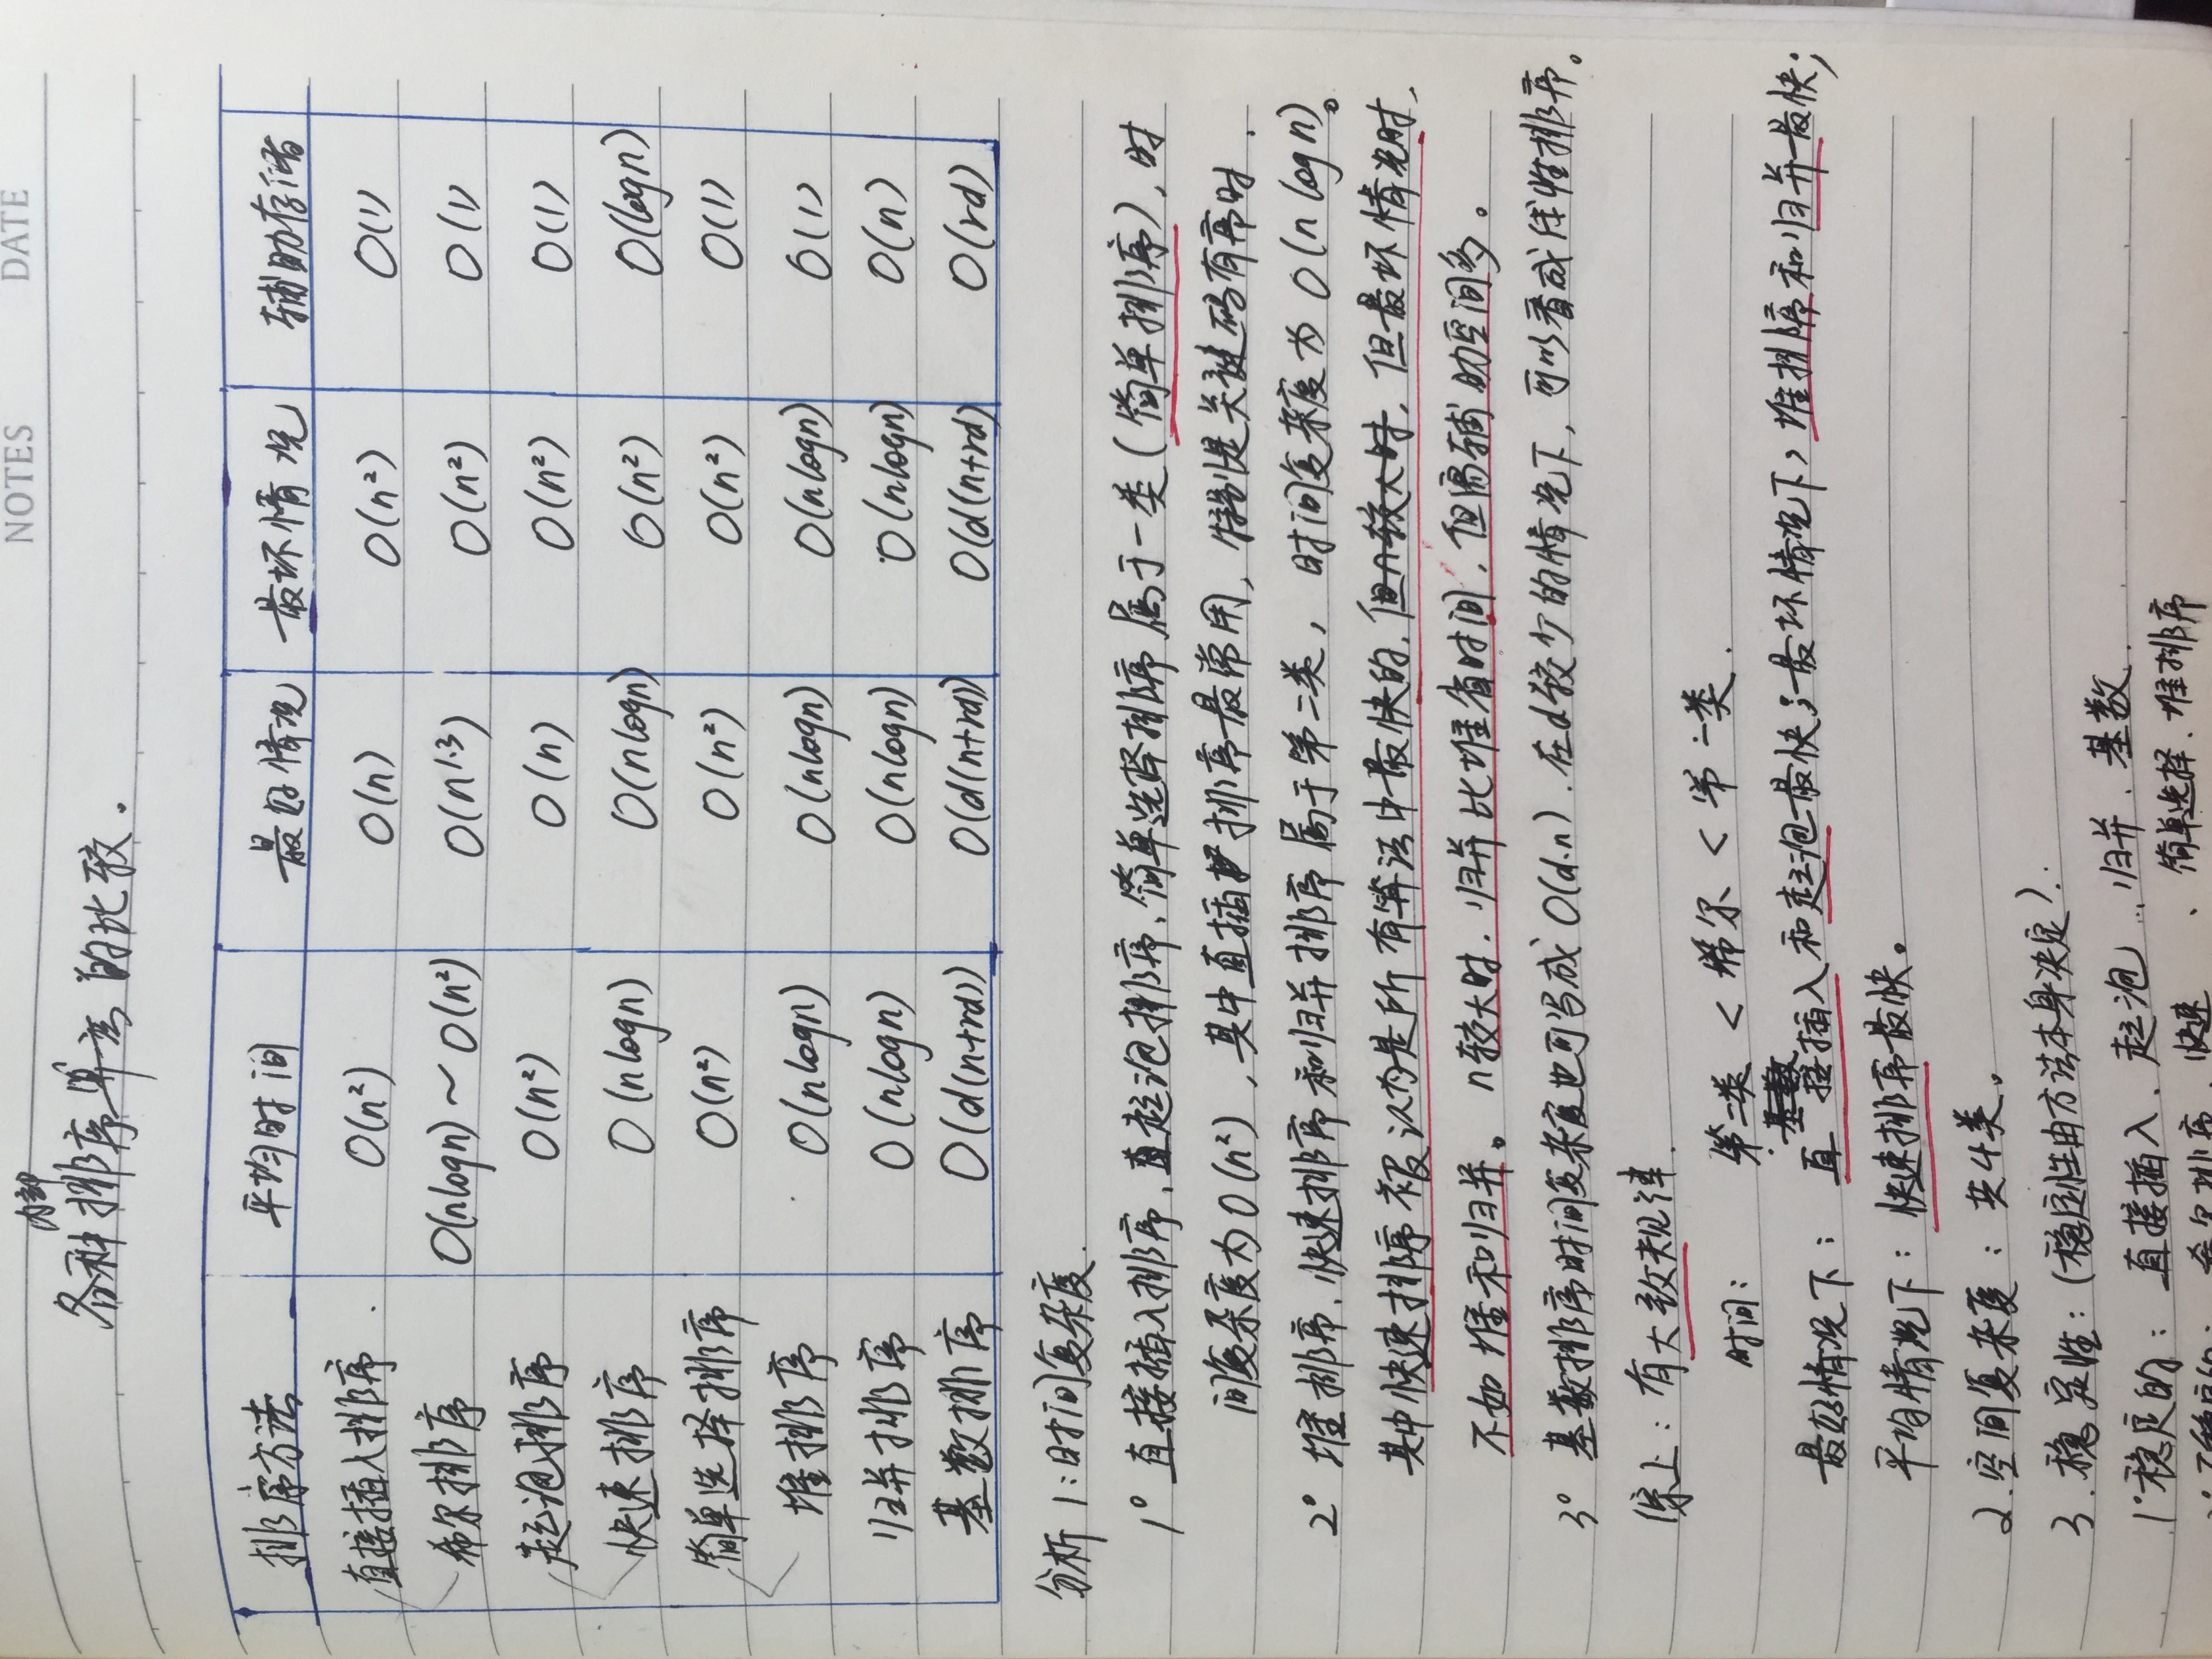 NOTES DATE
内部
各种排序算离的比较。
排序方法 平均时间 最好情况 最坏情况 辅助存储
直接插入排序 O(n²) O(n) O(n²) O(1)
希尔排序 O(nlogn)～O(n²) O(n1.3) O(n²) O(1)
起泡排序 O(n²) O(n) O(n²) O(1)
快速排序 O(nlogn) O(nlogn) O(n²) O(logn)
简单选择排序 O(n²) O(n²) O(n²) O(1)
堆排序 O(nlogn) O(nlogn) O(nlogn) O(1)
归并排序 O(nlogn) O(nlogn) O(nlogn) O(n)
基数排序 O(d(n+rd)) O(d(n+rd)) O(d(n+rd)) O(rd)
分析 1:时间复杂度.
1° 直接插入排序、起泡排序、简单选择排序属于一类(简单排序),时
间复杂度为O(n²),其中直接插排序最常用,特别是关键码有序时.
2° 堆排序、快速排序和归并排序属于第二类,时间复杂度为O(nlogn)。
其中快速排序被认为是所有算法中最快的.但n较大时,但最坏情况时,
不如堆和归并。n较大时.归并比堆省时间,但需辅助空间多。
3° 基数排序时间复杂度也可写成O(d·n).在d较少的情况下,可以看成线性排序。
综上:有大致规律.
时间: 第二类 < 希尔 < 第一类.
基数
最好情况下:直接插入和起泡最快;最坏情况下,堆排序和归并最快;
平均情况下:快速排序最快。
2.空间复杂度:共4类。
3.稳定性:(稳定性由方法本身决定).
1°稳定的:直接插入、起泡、归并、基数
希尔排序、快速、简单选择、堆排序